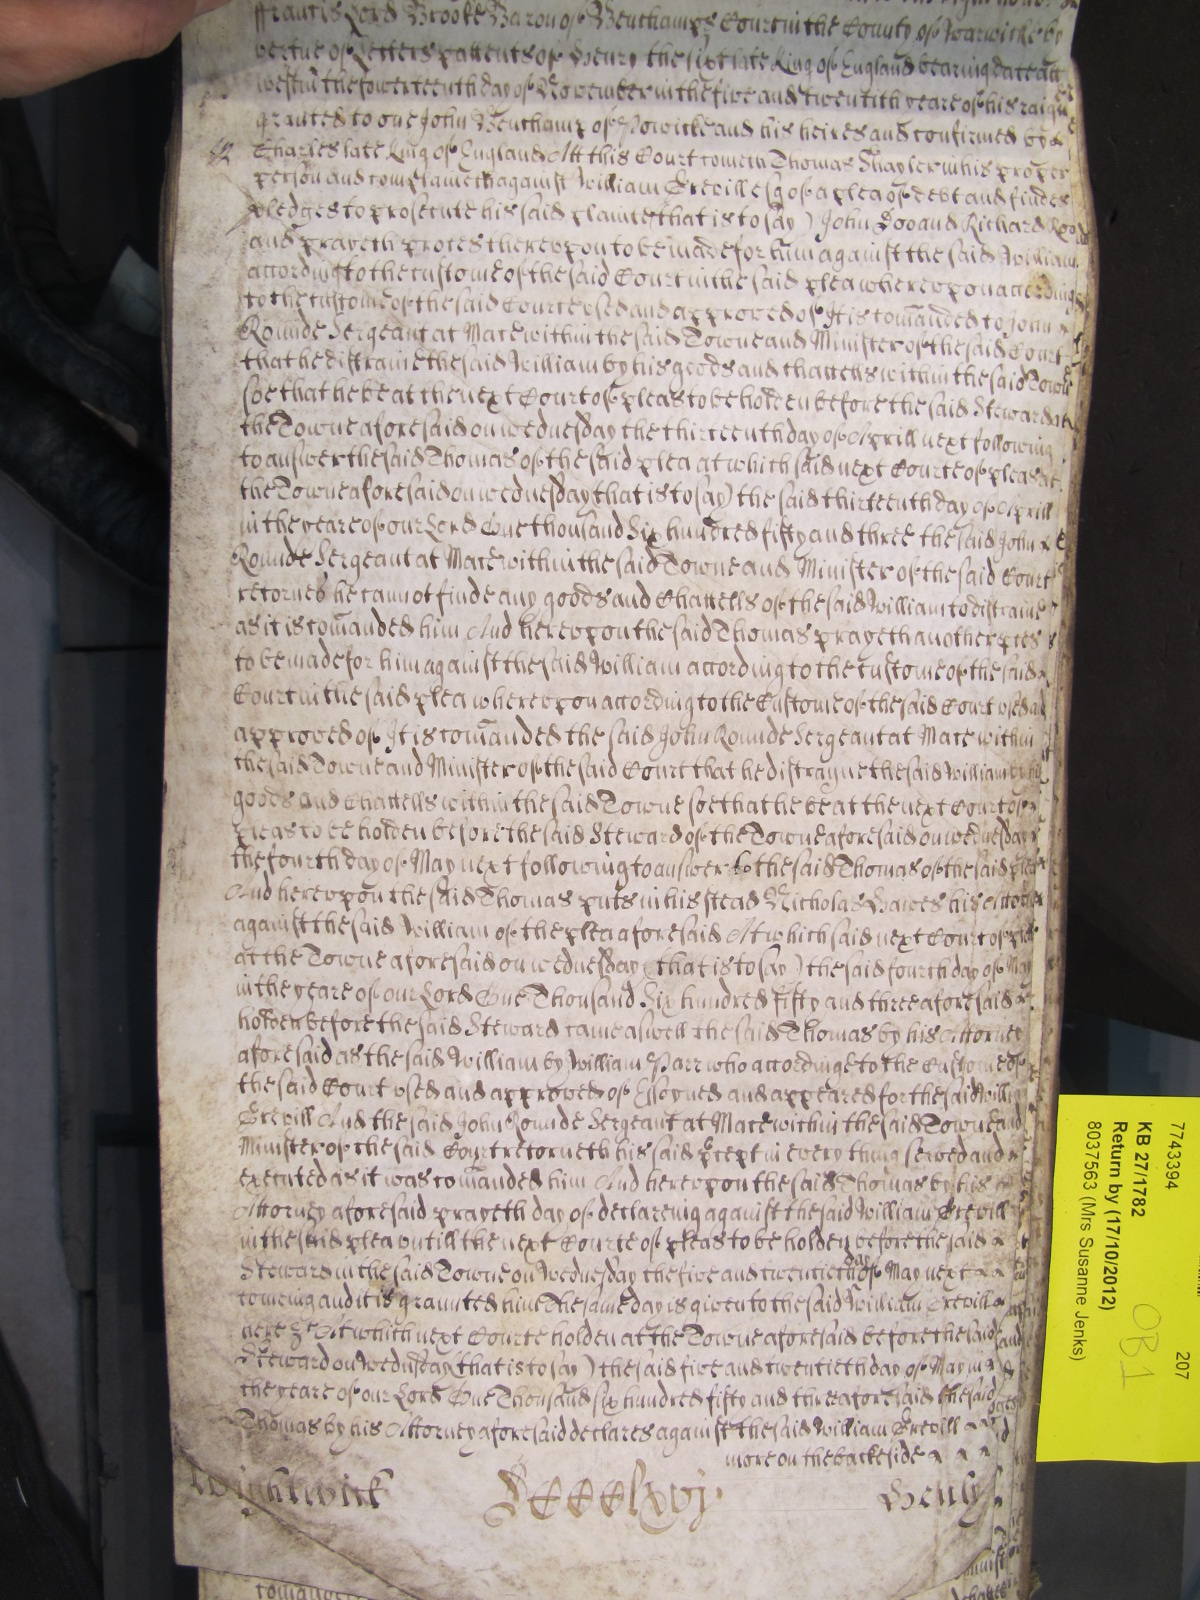 Francis Lord Brooke Baron of Beuchamps Court in the County of Warwicke by
vertue of Letters pattents of Henry the sixt late King of England bearing date att
westm the fowerteenth day of November in the five and twentith yeare of his raigne
granted to one John Beuchamp of Powicke and his heires and confirmed by
Charles late King of England Att this Court cometh Thomas Shayler in his proper
person and complaineth against William Grevill esq of a plea of debt and findes
pledges to prosecute his said plainte (that is to say) John Doo and Richard Roo
and prayeth proces thereupon to be made for him against the said William
according to the custome of the said Court in the said plea whereupon according
to the custome of the said Courte used and approved of It is comanded to John
Rounde Sergeant at Mace within the said Towne and Minister of the said Court
that he distraine the said William by his goods and chattells within the said Towne
soe that he be at the next Court of pleas to be holden before the said Steward att
the Towne aforesaid on wednesday the thirteenth day of Aprill next following
to answer the said Thomas of the said plea at which said next Courte of pleas at
the Towne aforesaid on wednesday (that is to say) the said thirteenth day of Aprill
in the yeare of our Lord One thousand Six hundred fifty and three the said John
Rounde Sergeant at Mace within the said Towne and Minister of the said Court
retorned he cannot finde any goods and Chattells of the said William to distraine
as it is comanded him And hereupon the said Thomas prayeth another pces
to be made for him against the said William according to the custome of the said
Court in the said plea whereupon according to the Custome of the said Court used and
approved of It is comanded the said John Rounde Sergeant at Mace within
the said Towne and Minister of the said Court that he distrayne the said William by his
goods and Chattells within the said Towne soe that he be at the next Court of
pleas to be holden before the said Steward of the Towne aforesaid on wednesday
the fourth day of May next following to answer to the said Thomas of the said plea
And hereupon the said Thomas puts in his stead Nicholas Hawes his Attorney
against the said William of the plea aforesaid At which said next Court of pleas
at the Towne aforesaid on wednesday (that is to say) the said fourth day of May
in the yeare of our Lord One Thousand Six hundred fifty and three aforesaid
holden before the said Steward came aswell the said Thomas by his Attorney
aforesaid as the said William by William Parr who accordinge to the Custome of
the said Court used and approved of Essoyned and appeared for the said William
Grevill And the said John Rounde Sergeant at Mace within the said Towne and
Minister of the said Court retorneth his said pcept in every thing served and
executed as it was comanded him And hereupon the said Thomas by his
Attorney aforesaid prayeth day of declareing against the said William Grevill
in the said plea untill the next Courte of pleas to be holden before the said
Steward in the said Towne on Wednesday the five and twentieth day of May next
comeing and it is graunted him The same day is given to the said William Grevill
here &c At which next Courte holden at the Towne aforesaid before the said
Steward on Wednesday (that is to say) the said five and twentieth day of May in
the yeare of our Lord One Thousand six hundred fifty and three aforesaid the said
Thomas by his Attorney aforesaid declares against the said William Grevill
more on the backe side
Wightwick
DCCCClxvj
Henly
7743394
207
KB 27/1782
Return by (17/10/2012)
8037563 (Mrs Susanne Jenks)
OB1